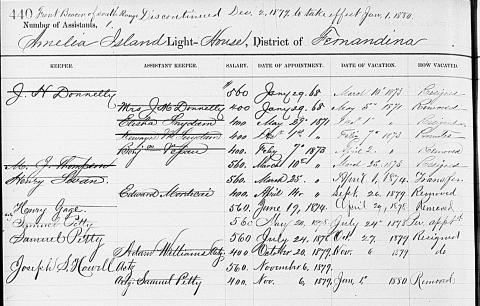 440 Front Beacon of north Range Discontinued Dec. 2, 1879 to take effect Jan. 1, 1880.
Number of Assistants,
Amelia Island Light-House, District of Fernandina
KEEPER. ASSISTANT KEEPER. SALARY. DATE OF APPOINTMENT. DATE. HOW VACATED.
J. H. Donnelly $560 Jany 29. 68 March 10" 1873 Resigned
Mrs. J. H. Donnelly 400 Jany 29. 68 May 5" 1871 Removed
Elisha 400 May 29" 1871 1" "
400 " Feby 7" 1873
400 Feby 7" 1873 April 2. " Removed
Thompson 560. March 10" " March 25. 1873 Resigned
Henry Swan. 560. March 25. " April 1, 1874 Transfer
Edward 400. April 14. " Sept. 26 1879 Removed
Henry Gage. 560. June 19, 1874. April 29, 1878 Removed
Petty 560 May 20, 1878 July 24" 1878
Samuel Petty 560 July 24, 1878 Oct. 27, 1879 Resigned
Adam Williams Actg. 400 October 20, 1879 Nov. 6 1879 do
Joseph S. Howell Actg 560. November 6, 1879.
Actg. Samuel Petty 400. Nov. 6, 1879. Jan. 1, 1880 Removed